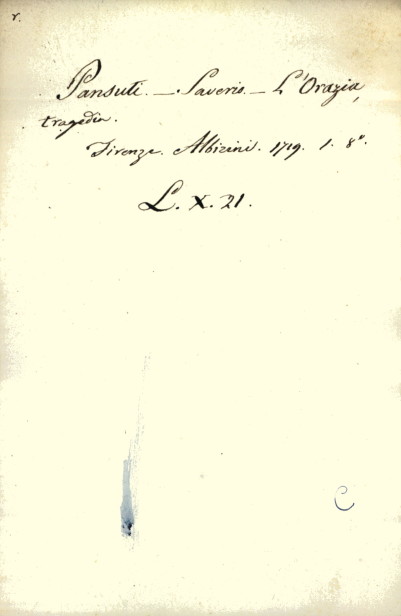 r.
Pansuti. — Saverio. — L'Orazia,
tragedia.
Firenze. Albizini. 1719. 1. 8°.
L. X. 21.
C